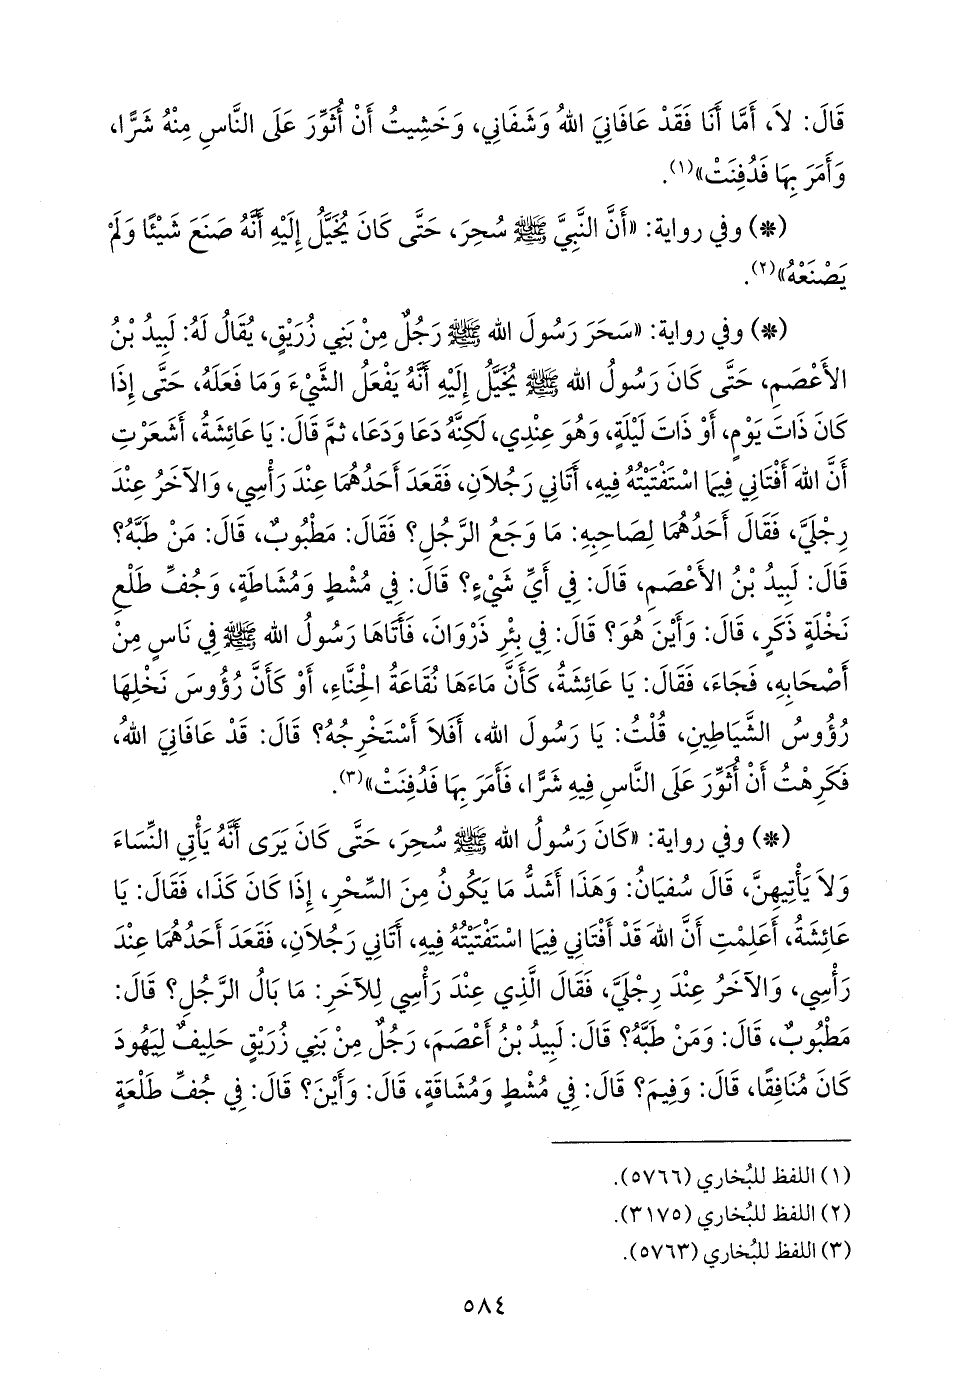 قَالَ: لاَ، أَمَّا أَنَا فَقَدْ عَافَانِيَ اللهُ وَشَفَانِي، وَخَشِيتُ أَنْ أُثَوِّرَ عَلَى النَّاسِ مِنْهُ شَرًّا،
وَأَمَرَ بِهَا فَدُفِنَتْ»(١).
(*) وفي رواية: «أَنَّ النَّبِيَّ ﷺ سُحِرَ، حَتَّى كَانَ يُخَيَّلُ إِلَيْهِ أَنَّهُ صَنَعَ شَيْئًا وَلَمْ
يَصْنَعْهُ»(٢).
(*) وفي رواية: «سَحَرَ رَسُولَ الله ﷺ رَجُلٌ مِنْ بَنِي زُرَيْقٍ، يُقَالُ لَهُ: لَبِيدُ بْنُ
الأَعْصَمِ، حَتَّى كَانَ رَسُولُ الله ﷺ يُخَيَّلُ إِلَيْهِ أَنَّهُ يَفْعَلُ الشَّيْءَ وَمَا فَعَلَهُ، حَتَّى إِذَا
كَانَ ذَاتَ يَوْمٍ، أَوْ ذَاتَ لَيْلَةٍ، وَهُوَ عِنْدِي، لَكِنَّهُ دَعَا وَدَعَا، ثمَّ قَالَ: يَا عَائِشَةُ، أَشَعَرْتِ
أَنَّ اللهَ أَفْتَانِي فِيمَا اسْتَفْتَيْتُهُ فِيهِ، أَتَانِي رَجُلاَنِ، فَقَعَدَ أَحَدُهُمَا عِنْدَ رَأْسِي، وَالآخَرُ عِنْدَ
رِجْلَيَّ، فَقَالَ أَحَدُهُمَا لِصَاحِبِهِ: مَا وَجَعُ الرَّجُلِ؟ فَقَالَ: مَطْبُوبٌ، قَالَ: مَنْ طَبَّهُ؟
قَالَ: لَبِيدُ بْنُ الأَعْصَمِ، قَالَ: فِي أَيِّ شَيْءٍ؟ قَالَ: فِي مُشْطٍ وَمُشَاطَةٍ، وَجُفِّ طَلْعِ
نَخْلَةٍ ذَكَرٍ، قَالَ: وَأَيْنَ هُوَ؟ قَالَ: فِي بِئْرِ ذَرْوَانَ، فَأَتَاهَا رَسُولُ الله ﷺ فِي نَاسٍ مِنْ
أَصْحَابِهِ، فَجَاءَ، فَقَالَ: يَا عَائِشَةُ، كَأَنَّ مَاءَهَا نُقَاعَةُ الحِنَّاءِ، أَوْ كَأَنَّ رُؤُوسَ نَخْلِهَا
رُؤُوسُ الشَّيَاطِينِ، قُلْتُ: يَا رَسُولَ الله، أَفَلاَ أَسْتَخْرِجُهُ؟ قَالَ: قَدْ عَافَانِيَ اللهُ،
فَكَرِهْتُ أَنْ أُثَوِّرَ عَلَى النَّاسِ فِيهِ شَرًّا، فَأَمَرَ بِهَا فَدُفِنَتْ»(٣).
(*) وفي رواية: «كَانَ رَسُولُ الله ﷺ سُحِرَ، حَتَّى كَانَ يَرَى أَنَّهُ يَأْتِي النِّسَاءَ
وَلاَ يَأْتِيهِنَّ، قَالَ سُفيَانُ: وَهَذَا أَشَدُّ مَا يَكُونُ مِنَ السِّحْرِ، إِذَا كَانَ كَذَا، فَقَالَ: يَا
عَائِشَةُ، أَعَلِمْتِ أَنَّ اللهَ قَدْ أَفْتَانِي فِيمَا اسْتَفْتَيْتُهُ فِيهِ، أَتَانِي رَجُلاَنِ، فَقَعَدَ أَحَدُهُمَا عِنْدَ
رَأْسِي، وَالآخَرُ عِنْدَ رِجْلَيَّ، فَقَالَ الَّذِي عِنْدَ رَأْسِي لِلآخَرِ: مَا بَالُ الرَّجُلِ؟ قَالَ:
مَطْبُوبٌ، قَالَ: وَمَنْ طَبَّهُ؟ قَالَ: لَبِيدُ بْنُ أَعْصَمَ، رَجُلٌ مِنْ بَنِي زُرَيْقٍ حَلِيفٌ لِيَهُودَ
كَانَ مُنَافِقًا، قَالَ: وَفِيمَ؟ قَالَ: فِي مُشْطٍ وَمُشَاقَةٍ، قَالَ: وَأَيْنَ؟ قَالَ: فِي جُفِّ طَلْعَةٍ
(١) اللفظ للبُخاري (٥٧٦٦).
(٢) اللفظ للبُخاري (٣١٧٥).
(٣) اللفظ للبُخاري (٥٧٦٣).
٥٨٤